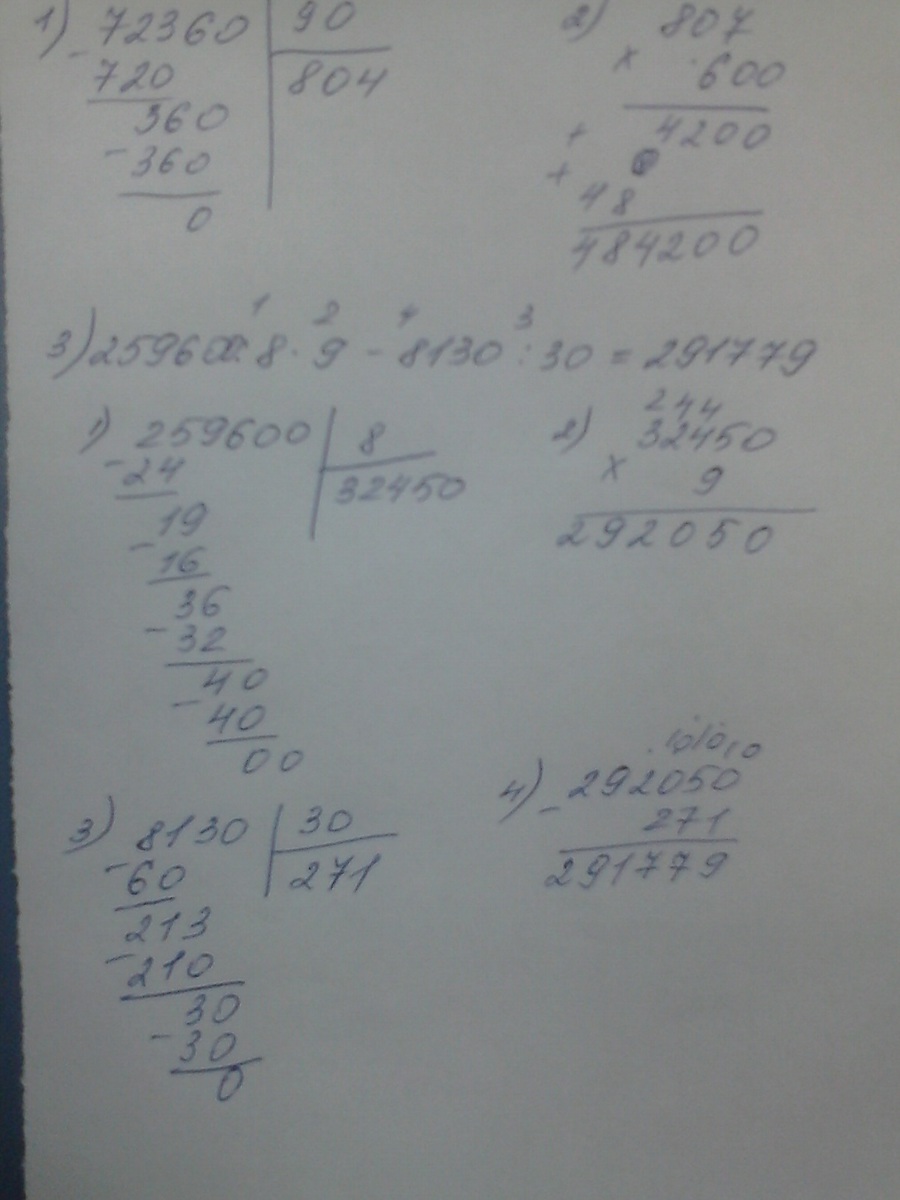 1) 72360 | 90
- 720 | 804
360
- 360
0
2) 807
x 600
+ 4200
+ 0
48
484200
1 2 4 3
3) 259600:8·9-8130:30=291779
1) 259600 | 8
- 24 | 32450
19
- 16
36
- 32
40
- 40
00
2) 244
32450
x 9
292050
3) 8130 | 30
- 60 | 271
213
- 210
30
- 30
0
4) 292050
- 271
291779